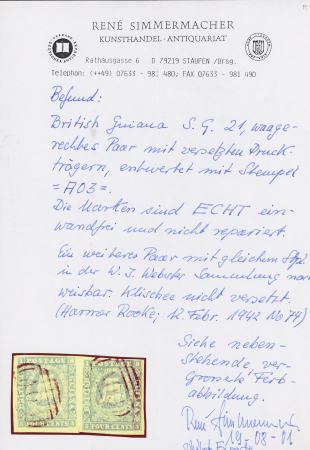 RENÉ SIMMERMACHER
KUNSTHANDEL - ANTIQUARIAT
Rathausgasse 6 D 79219 STAUFEN /Brsg.
Telephon: (++49) 07633 - 981 480; FAX 07633 - 981 490
Befund:
British Guiana S.G. 21, waage-
rechtes Paar mit versetzten Druck-
trägern, entwertet mit Stempel
= A03 =.
Die Marken sind ECHT ein-
wandfrei und nicht repariert.
Ein weiteres Paar mit gleichem Stpl.
in der W. J. Webster Sammlung nach
weisbar. Klischee nicht versetzt.
(Harmer Rooke; 12. Febr. 1942 No 74)
Siehe neben-
stehende, ver-
grosserte Farb-
abbildung.
René Simmermacher
19-08-01
POSTAGE POSTAGE
FOUR CENTS FOUR CENTS